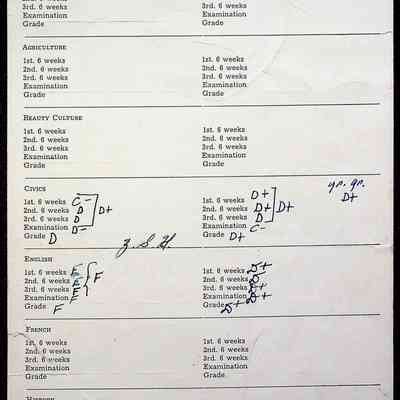 3rd. 6 weeks 3rd. 6 weeks
Examination Examination
Grade Grade
AGRICULTURE
1st. 6 weeks 1st. 6 weeks
2nd. 6 weeks 2nd. 6 weeks
3rd. 6 weeks 3rd. 6 weeks
Examination Examination
Grade Grade
BEAUTY CULTURE
1st. 6 weeks 1st. 6 weeks
2nd. 6 weeks 2nd. 6 weeks
3rd. 6 weeks 3rd. 6 weeks
Examination Examination
Grade Grade
CIVICS yr. gr.
1st. 6 weeks C- 1st. 6 weeks D+ D+
2nd. 6 weeks D D+ 2nd. 6 weeks D+ D+
3rd. 6 weeks D 3rd. 6 weeks D
Examination D- Examination C-
Grade D Grade D+
ENGLISH
1st. 6 weeks F 1st. 6 weeks D+
2nd. 6 weeks F 2nd. 6 weeks D
3rd. 6 weeks F 3rd. 6 weeks D+
Examination F Examination D+
Grade F Grade D+
FRENCH
1st. 6 weeks 1st. 6 weeks
2nd. 6 weeks 2nd. 6 weeks
3rd. 6 weeks 3rd. 6 weeks
Examination Examination
Grade Grade